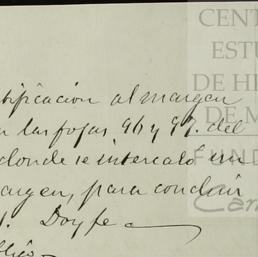 CENT
ESTU
DE HI
DE M
FUND
Car
tificacion al margen
las fojas 96 y 97. del
donde se intercaló un
argen, para concluir
Doy fe